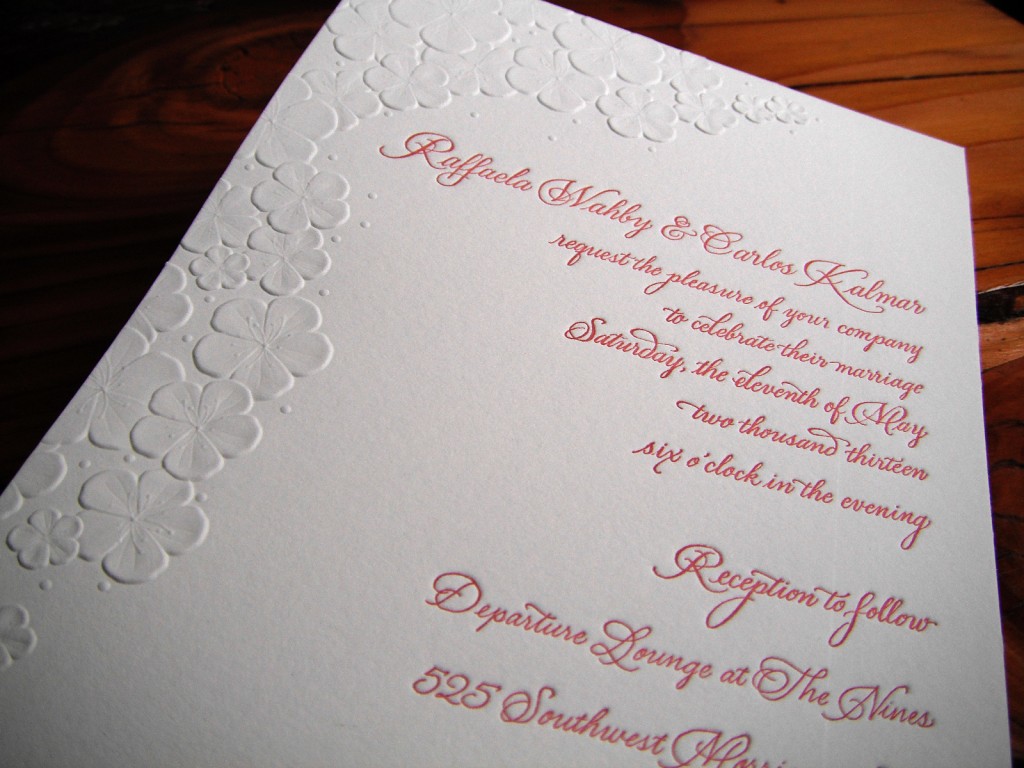 Raffaela Wahby & Carlos Kalmar
request the pleasure of your company
to celebrate their marriage
Saturday, the eleventh of May
two thousand thirteen
six o'clock in the evening
Reception to follow
Departure Lounge at The Nines
525 Southwest